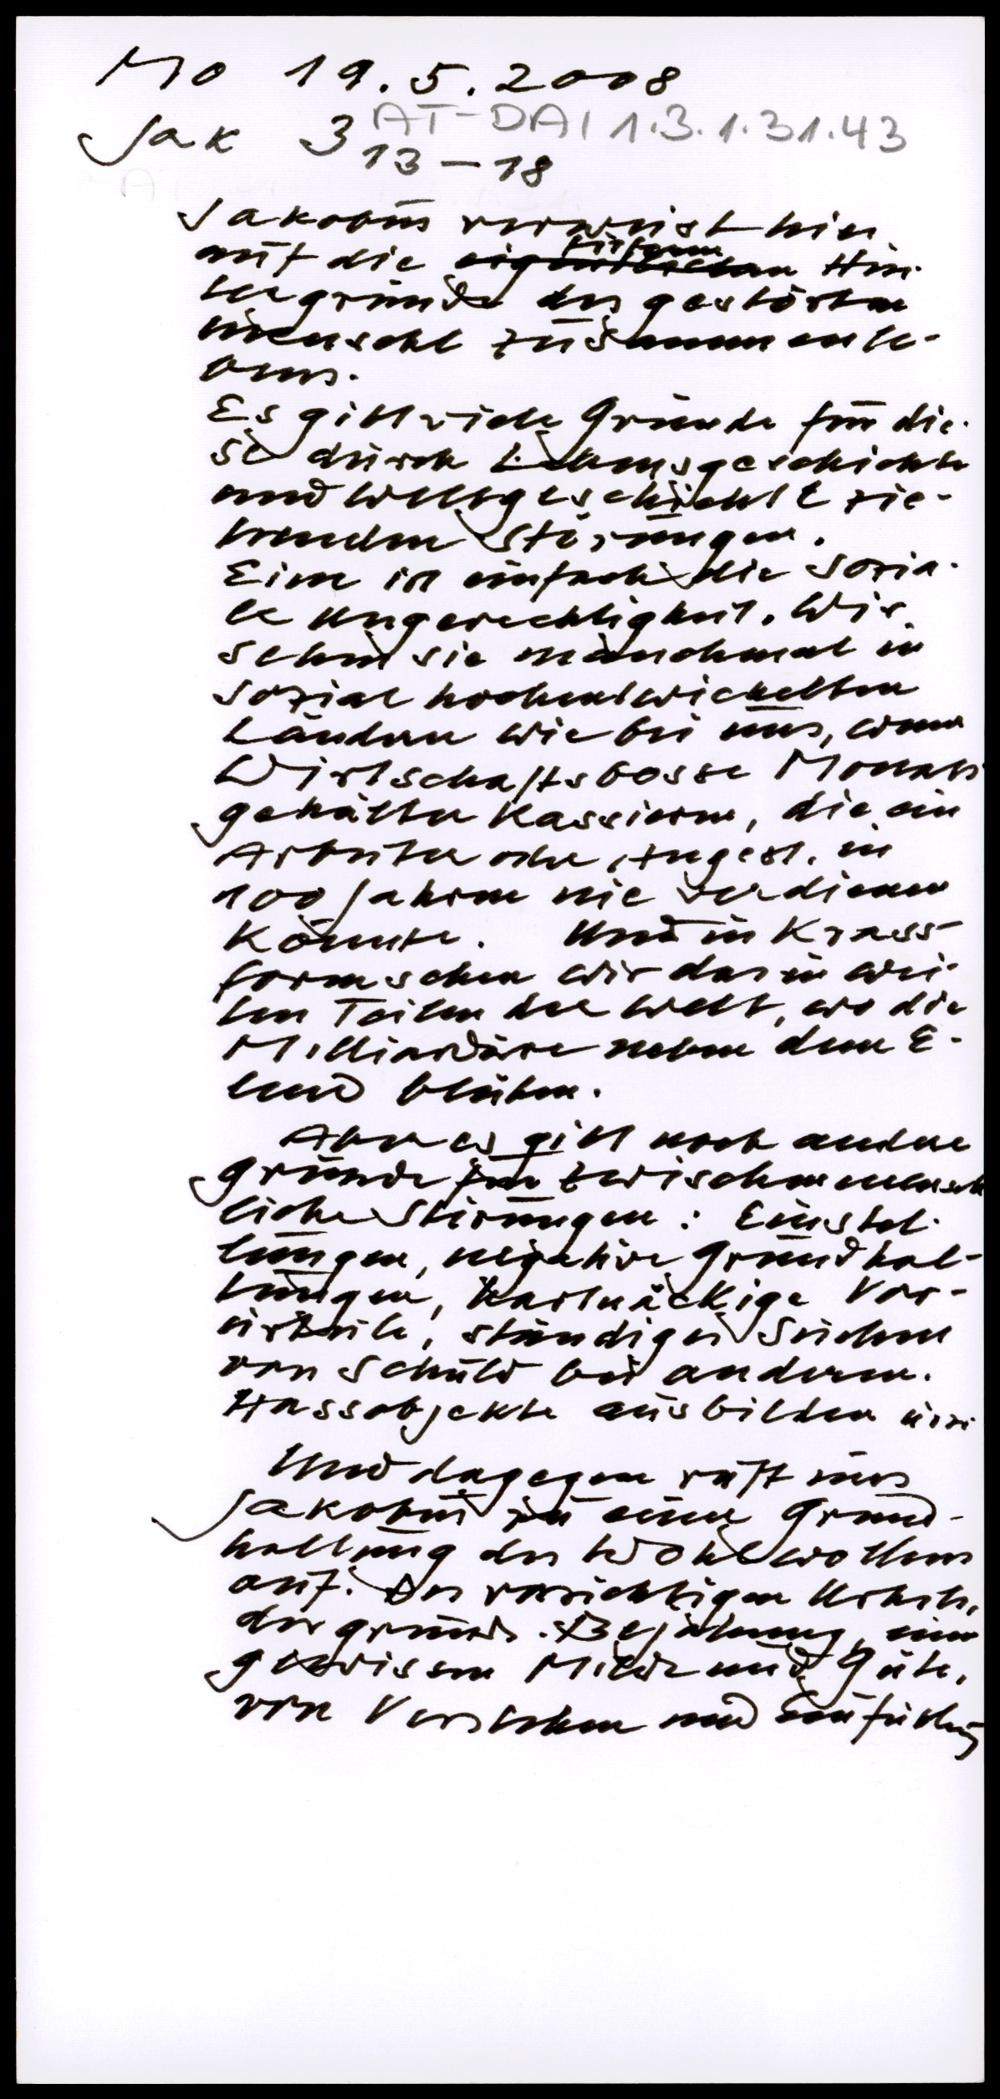 Mo 19.5.2008
AT-DAI 1.3.1.31.43
Jak 3 13–18
Jakobus verweist hin
auf die tieferen Hin-
tergründe des gestörten
menschl Zusammenle-
bens.
Es gibt viele Gründe für die-
se durch Lebensgeschichte
und Weltgeschichte zie-
henden Störungen.
Eine ist einfach die sozia-
le Ungerechtigkeit. Wir
sehen sie manchmal in
sozial hochentwickelten
Ländern wie bei uns, wenn
Wirtschaftsbosse Monats
gehälter kassieren, die ein
Arbeiter oder Angest. in
100 Jahren nie verdienen
könnte. Und in Krass
form sehen wir das in wei-
ten Teilen der Welt, wo die
Milliardäre neben dem E-
lend blühen.
Aber es gibt noch andere
Gründe für zwischenmensch
liche Störungen: Einstel-
lungen, negative Grundhal-
tungen, hartnäckige Vor-
urteile, ständiges Suchen
von Schuld bei anderen.
Hassobjekte ausbilden
Und dagegen ruft uns
Jakobus zu einer Grund-
haltung des Wohlwollens
auf. Des vorsichtigen Urteils,
der grunds. Bejahung, einer
gewissen Milde und Güte,
von Verstehen und Einfühlung